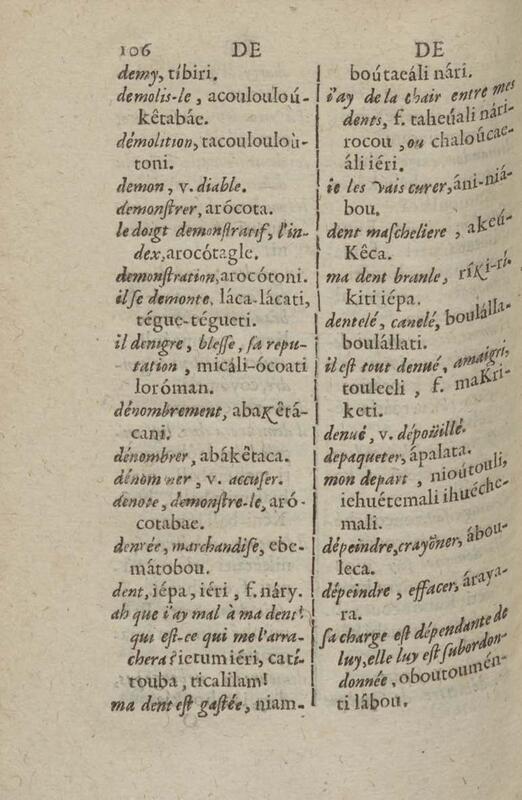 106 DE DE
demy, tíbiri.
demolis-le, acouloulouú-
kêtabáe.
démolition, tacouloulouù-
toni.
demon, v. diable.
demonstrer, arócota.
le doigt demonstratif, l'in-
dex, arocótagle.
demonstration, arocótoni.
il se demonte, láca-lácati,
tégue-tégueti.
il denigre, blesse, sa repu-
tation, micáli-ócoati
loróman.
dénombrement, abaKêtá-
cani.
dénombrer, abákêtaca.
dénommer, v. accuser.
denote, demonstre-le, aró-
cotabae.
denrée, marchandise, ebe-
mátobou.
dent, iépa, iéri, f. náry.
ah que i'ay mal à ma dent!
qui est-ce qui me l'arra-
chera? ietumiéri, catí-
touba, ticalilam!
ma dent est gastée, niam-
boútacáli nári.
i'ay de la chair entre mes
dents, f. taheüali nári-
rocou, ou chaloúcae-
áli iéri.
ie les vais curer, áni-niá-
bou.
dent mascheliere, akeú-
Kêca.
ma dent branle, ríKi-ri-
kiti iépa.
dentelé, canelé, boulálla-
boulállati.
il est tout denué, amaigri,
touleeli, f. maKri-
keti.
denué, v. dépoüillé.
depaqueter, ápalata.
mon depart, nioútouli,
iehuétemali ihuéche-
mali.
dépeindre, crayõner, ábou-
leca.
dépeindre, effacer, áraya-
ra.
sa charge est dépendante de
luy, elle luy est subordon-
donnée, oboutoumén-
ti lábou.